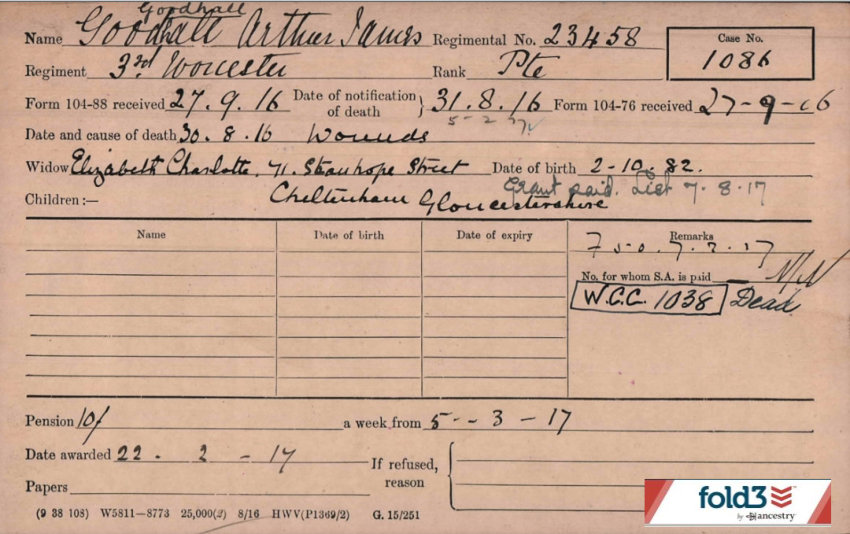 Goodhall
Name Goodhall Arthur James Regimental No. 23458 Case No.
1086
Regiment 3rd Worcester Rank Pte
Form 104-88 received 27.9.16 Date of notification of death } 31.8.16 Form 104-76 received 27-9-16
Date and cause of death 30.8.16 Wounds
Widow Elizabeth Charlotte, 71. Stanhope Street Date of birth 2-10.82.
Grant paid. List 7.8.17
Children:— Cheltenham Gloucestershire
Name Date of birth Date of expiry Remarks
No. for whom S.A. is paid —
W.C.C. 1038 Dead
Pension 10/ a week from 5 - 3 - 17
Date awarded 22 . 2 - 17
If refused, reason
Papers
(9 38 108) W5811—8773 25,000(2) 8/16 HWV(P1369/2) G. 15/251
fold3
by ancestry